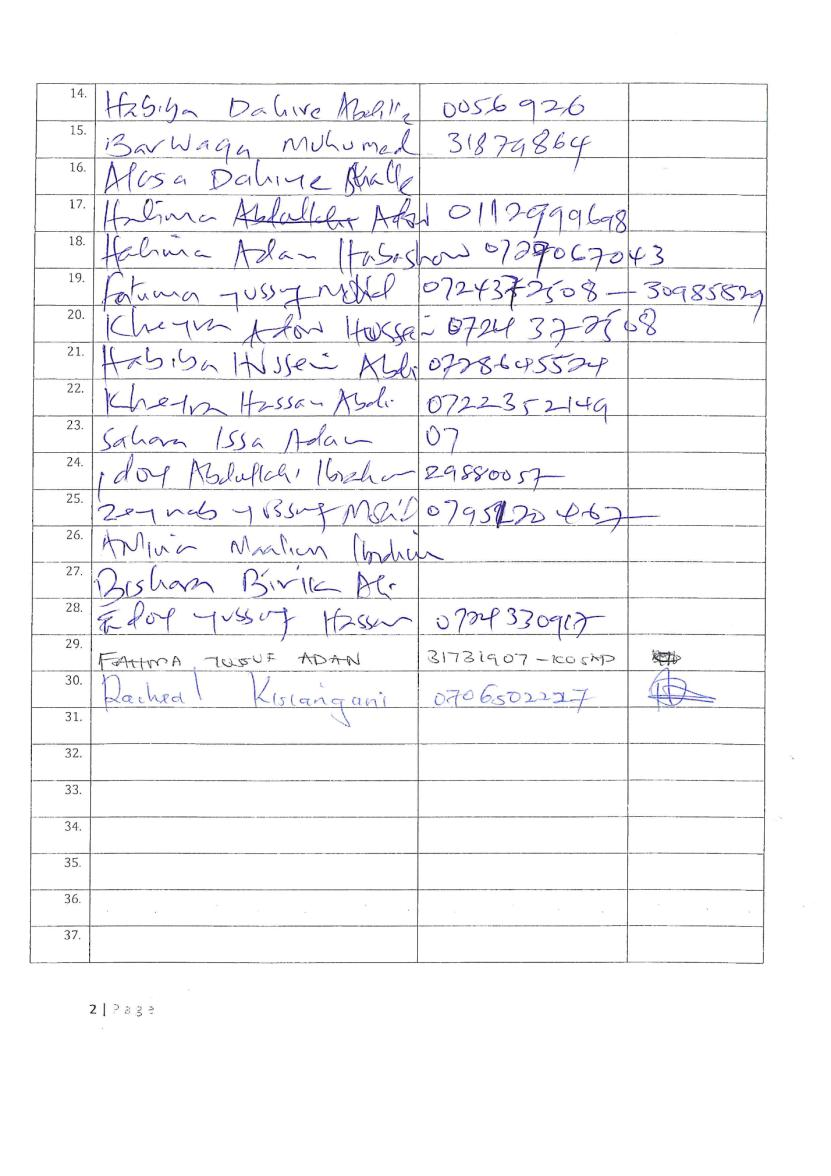 14. Habiba Dahire 0056926
15. Barwaqa Muhumed 31879864
16. Alasa Dahiye
17. Halima Abdullahi Adow 0112999698
18. Halima Adan Habashow 0729067043
19. Fatuma yussuf Mohd 0724372508 - 30985829
20. Kheyra Adow Hussein 0724 372508
21. Habiba Hussein Abdi 0728645524
22. Kheyra Hassan Abdi 0722352149
23. Sahara Issa Adan 07
24. idoy Abdullahi Ibrahim 29880057
25. Zeynab yussuf Mohd 0795120467
26. Maalim Ibrahim
27. Bishara Birik Ali
28. Edoy yussuf Hassan 0724330917
29. FATHMA YUSUF ADAN 31731907 -
30. Racheal Kisiangani 0706502227
31.
32.
33.
34.
35.
36.
37.
2 | Page